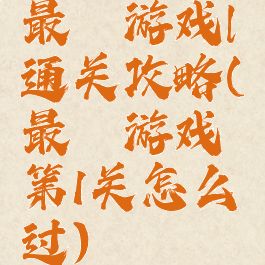 最 游戏|
通关攻略(
最 游戏
第1关怎么
过)